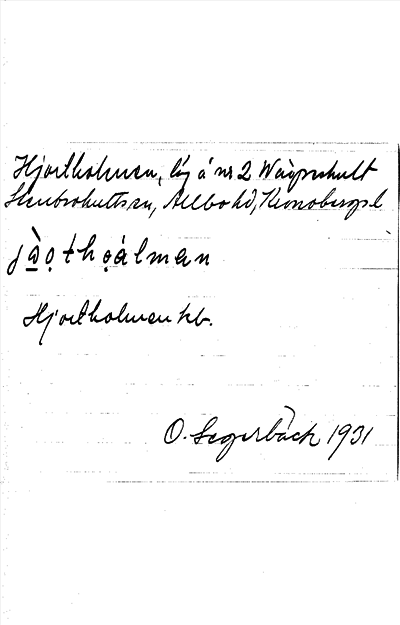 Hjortholmen, lg å nr 2 Wåghult
Stenbrohults sn, Allbo hd, Kronobergs l
jàọthọálman
Hjortholmen kb.
O. Segerbäck 1931